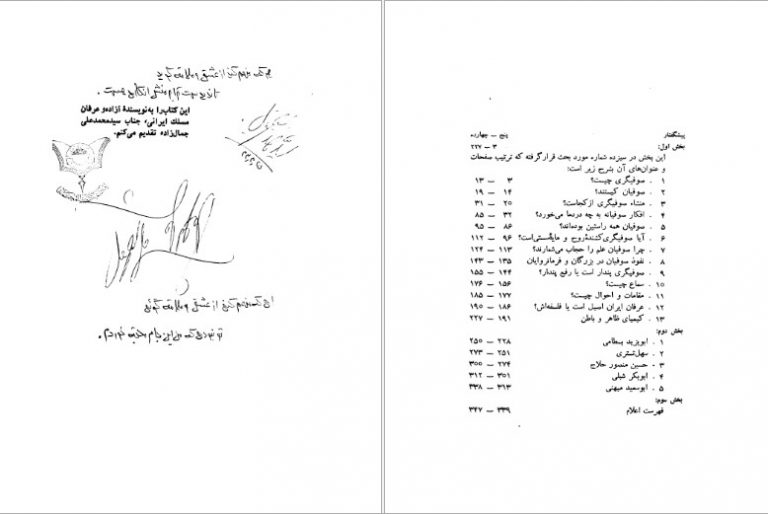 این کتاب را به نویسندهٔ آزاده و عرفان
مسلك ایرانی، جناب سیدمحمدعلی
جمال‌زاده تقدیم می‌کنم.
پیشگفتار پنج — چهارده
بخش اول: ۳ — ۲۲۷
این بخش در سیزده شماره مورد بحث قرار گرفته که ترتیب صفحات
و عنوان‌های آن بشرح زیر است:
۱ . سوفیگری چیست؟ ۳ — ۱۳
۲ . سوفیان کیستند؟ ۱۴ — ۱۹
۳ . منشاء سوفیگری از کجاست؟ ۲۰ — ۳۱
۴ . افکار سوفیانه به چه دردما می‌خورد؟ ۳۲ — ۸۵
۵ . سوفیان همه راستین بوده‌اند؟ ۸۶ — ۹۵
۶ . آیا سوفیگری کشندهٔ روح و مایهٔ سستی است؟ ۹۶ — ۱۱۲
۷ . چرا سوفیان علم را حجاب می‌شمارند؟ ۱۱۳ — ۱۲۴
۸ . نفوذ سوفیان در بزرگان و فرمانروایان ۱۳۵ — ۱۴۳
۹ . سوفیگری پندار است یا رفع پندار؟ ۱۴۴ — ۱۵۵
۱۰ . سماع چیست؟ ۱۵۶ — ۱۷۶
۱۱ . مقامات و احوال چیست؟ ۱۷۷ — ۱۸۵
۱۲ . عرفان ایران اسیل است یا فلسفه‌اش؟ ۱۸۶ — ۱۹۰
۱۳ . کیمیای ظاهر و باطن ۱۹۱ — ۲۲۷
بخش دوم:
۱ . ابویزید بسطامی ۲۲۸ — ۲۵۰
۲ . سهل تستری ۲۵۱ — ۲۷۳
۳ - حسین منصور حلاج ۲۷۴ — ۳۰۰
۴ . ابوبکر شبلی ۳۰۱ — ۳۱۲
۵ . ابوسعید میهنی ۳۱۳ — ۳۳۸
بخش سوم:
فهرست اعلام ۳۳۹ — ۳۴۷